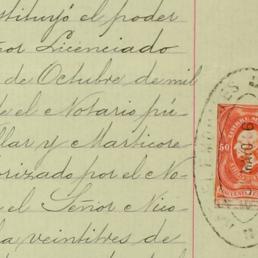 stituyó el poder
ñor Licenciado
de Octubre de mil
te el Notario pú-
llar y Marticore
orizado por el No-
el Señor Nico-
la veintitres de
50